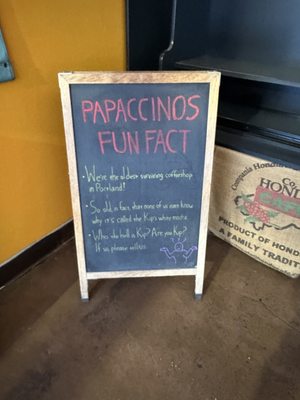 PAPACCINOS
FUN FACT
• We're the oldest surviving coffeeshop
in Portland!
• So old, in fact, that none of us even know
why it's called the Kip's white mocha.
• Who the hell is Kip? Are you Kip?
If so, please tell us.
Compania Hondure
HOND
PRODUCT
of HONDU
A FAMILY
TRADITI